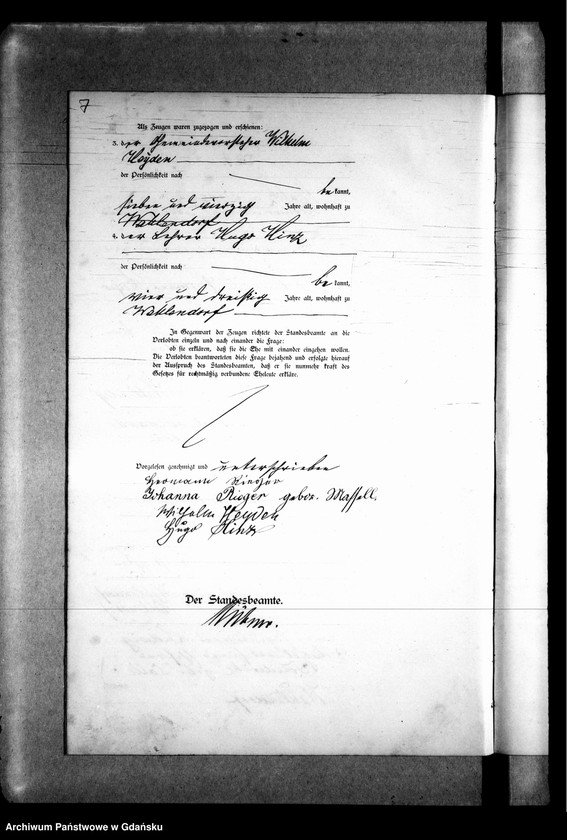 7
Als Zeugen waren zugezogen und erschienen:
3. der Gemeindevorsteher Wilhelm
Heyden
der Persönlichkeit nach
be kannt,
sieben und vierzig Jahre alt, wohnhaft zu
Wahlendorf
4. der Lehrer Hugo Hinz
der Persönlichkeit nach
be kannt,
vier und dreißig Jahre alt, wohnhaft zu
Wahlendorf
In Gegenwart der Zeugen richtete der Standesbeamte an die
Verlobten einzeln und nach einander die Frage:
ob sie erklären, daß sie die Ehe mit einander eingehen wollen.
Die Verlobten beantworteten diese Frage bejahend und erfolgte hierauf
der Ausspruch des Standesbeamten, daß er sie nunmehr kraft des
Gesetzes für rechtmäßig verbundene Eheleute erkläre.
Vorgelesen genehmigt und unterschrieben
Hermann Rieger
Johanna Rieger gebor. Massell.
Wilhelm Heyden
Hugo Hinz
Der Standesbeamte.
Archiwum Państwowe w Gdańsku